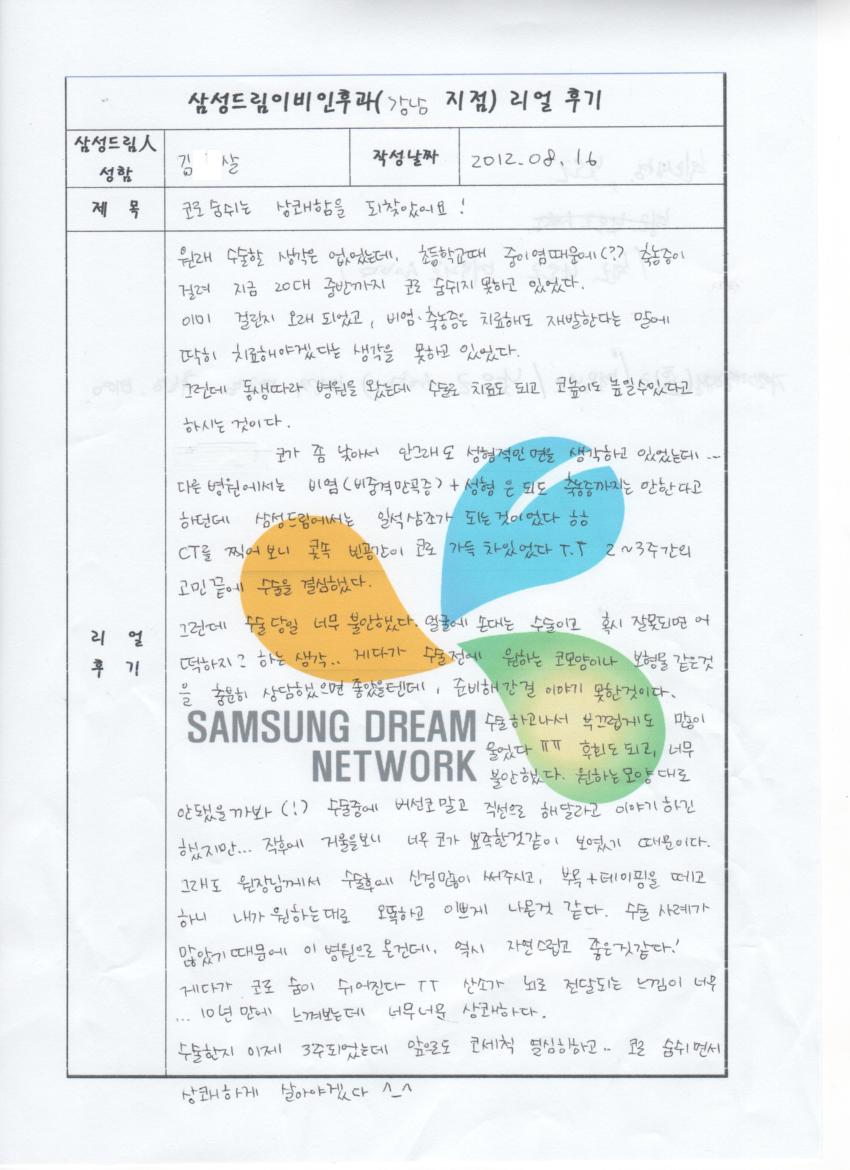 삼성드림이비인후과(강남 지점) 리얼 후기
삼성드림人 성함 김 살 작성날짜 2012.08.16
제 목 코로 숨쉬는 상쾌함을 되찾았어요!
원래 수술할 생각은 없었는데, 초등학교때 중이염때문에(?) 축농증이
걸려 지금 20대 중반까지 코로 숨쉬지 못하고 있었다.
이미 걸린지 오래 되었고, 비염·축농증은 치료해도 재발한다는 말에
딱히 치료해야겠다는 생각을 못하고 있었다.
그런데 동생따라 병원을 왔는데 수술로 치료도 되고 코높이도 높일수있다고
하시는것이다.
코가 좀 낮아서 안그래도 성형적인면을 생각하고 있었는데...
다른병원에서는 비염(비중격만곡증)+성형은 되도 축농증까지는 안한다고
하던데 삼성드림에서는 일석삼조가 되는것이었다 ㅎㅎ
CT를 찍어보니 콧속 빈공간이 코로 가득차있었다 T.T 2~3주간의
고민끝에 수술을 결심했다.
리 얼 후 기
그런데 수술당일 너무 불안했다. 얼굴에 손대는 수술이고 혹시 잘못되면 어
떡하지? 하는생각.. 게다가 수술전에 원하는 코모양이나 보형물같은것
을 충분히 상담했으면 좋았을텐데, 준비해간걸 이야기 못한것이다.
SAMSUNG DREAM NETWORK
수술하고나서 부끄럽게도 많이
울었다 ㅠㅠ 후회도되고, 너무
불안했다. 원하는모양대로
안됐을까봐(!) 수술중에 버선코말고 직선으로 해달라고 이야기하긴
했지만... 직후에 거울을보니 너무 코가 뾰족한것같이 보였기 때문이다.
그래도 원장님께서 수술후에 신경많이 써주시고, 부목+테이핑을 떼고
하니 내가 원하는대로 오똑하고 이쁘게 나온것 같다. 수술 사례가
많았기때문에 이 병원으로 온건데, 역시 자연스럽고 좋은것같다!
게다가 코로 숨이 쉬어진다 TT 산소가 뇌로 전달되는 느낌이 너무
...10년만에 느껴보는데 너무너무 상쾌하다.
수술한지 이제 3주되었는데 앞으로도 코세척 열심히하고.. 코로 숨쉬면서
상쾌하게 살아야겠다 ^_^